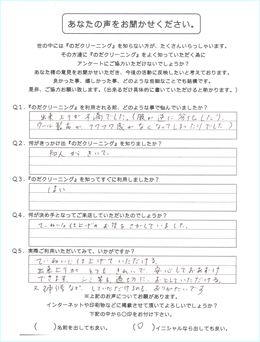 あなたの声をお聞かせください。
世の中には『のだクリーニング』を知らない方が、たくさんいらっしゃいます。
その方達に『のだクリーニング』をよく知っていただく為に
アンケートにご協力いただけないでしょうか？
あなた様の意見をお聞かせいただき、今後の活動に反映したいと考えております。
良かった事、嬉しかった事、どのような些細なことでも結構です。
是非、ご協力お願い致します。（出来るだけ具体的に書いていただけると助かります。）
Q1．『のだクリーニング』を利用される前、どのような事で悩んでいましたか？
出来上りが不満でした。（服が逆に劣化したり、
ウール製品がフワフワ感がなくなってしまったりでした）
Q2．何がきっかけ出『のだクリーニング』を知りましたか？
知人からきいて。
Q3．『のだクリーニング』を知ってすぐに利用しましたか？
はい
Q4．何が決め手となってご来店していただいたのでしょうか？
ていねいな仕上げのお店をさがしていました。
Q5．実際ご利用いただいてみて、いかがですか？
ていねいに仕上げていただける。
出来上りがとてもきれいで、安心しておあずけ
できます。シミ等も適切に、おとしていただける。
していただけるのも、ありがたいです。
※上記のお声についてお願いがあります。
インターネットや印刷物などに掲載させて頂いてよろしいでしょうか？
下記の中から○印をお付け下さい。
（　）名前を出しても良い。（○）イニシャルなら出しても良い。